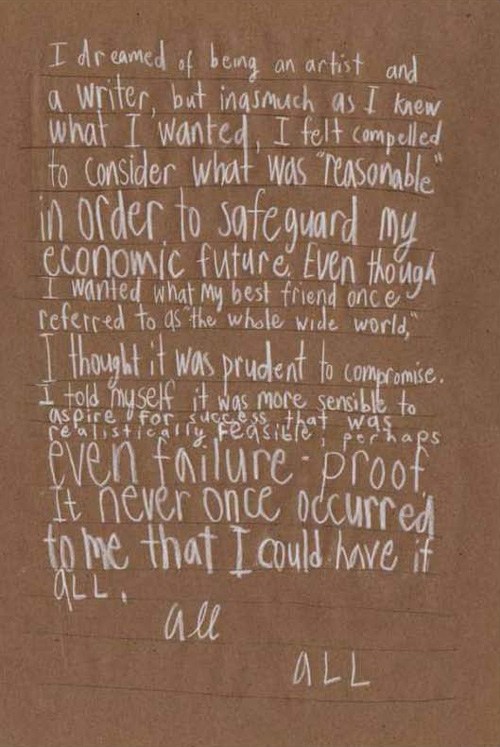 I dreamed of being an artist and
a writer, but inasmuch as I knew
what I wanted, I felt compelled
to consider what was "reasonable"
in order to safeguard my
economic future. Even though
I wanted what my best friend once
referred to as "the whole wide world,"
I thought it was prudent to compromise.
I told myself it was more sensible to
aspire for success that was
realistically feasible, perhaps
even failure-proof.
It never once occurred
to me that I could have it
aLL.
all
aLL